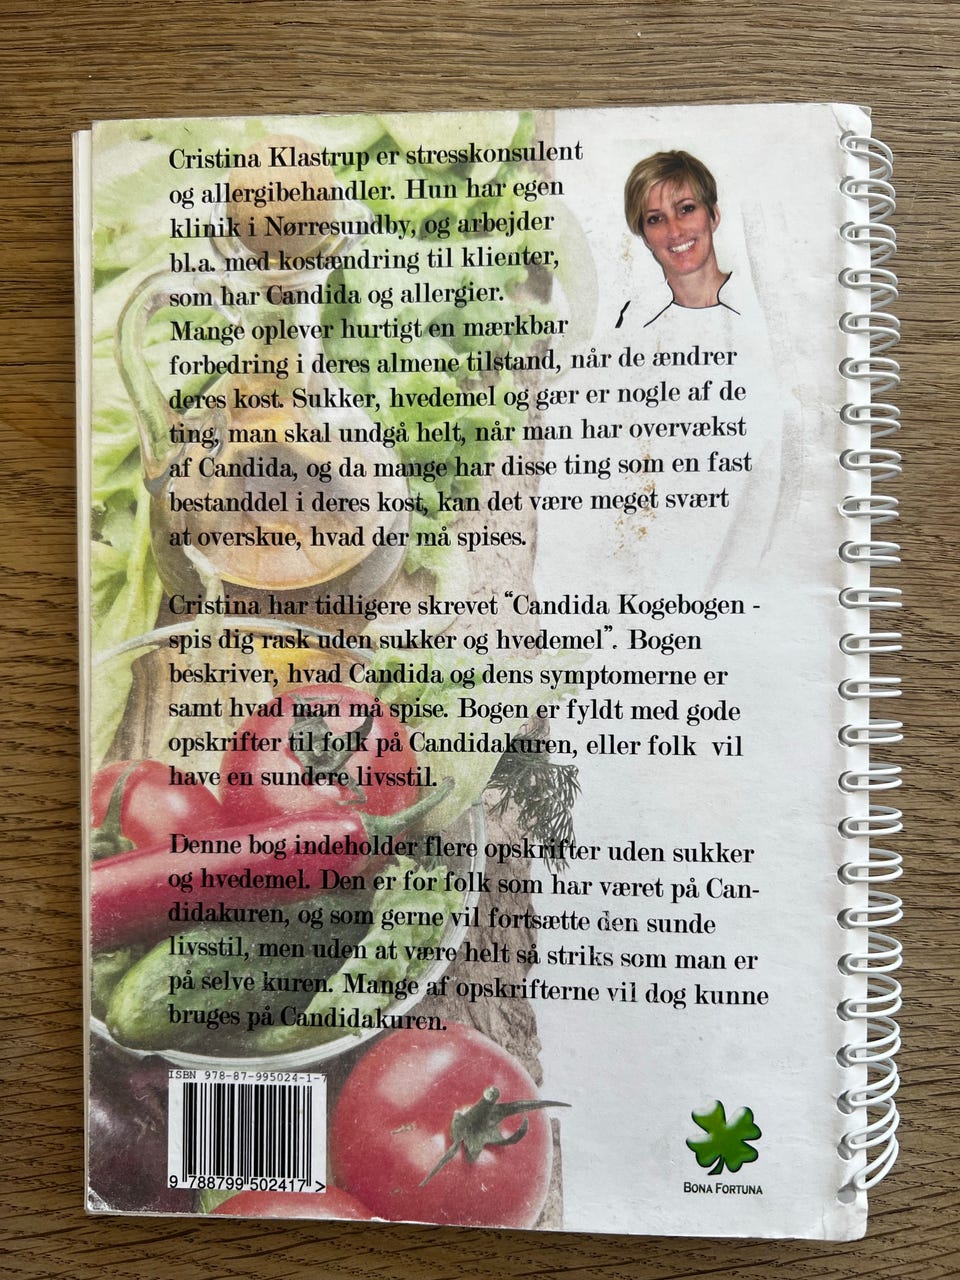 Cristina Klastrup er stresskonsulent
og allergibehandler. Hun har egen
klinik i Nørresundby, og arbejder
bl.a. med kostændring til klienter,
som har Candida og allergier.
Mange oplever hurtigt en mærkbar
forbedring i deres almene tilstand, når de ændrer
deres kost. Sukker, hvedemel og gær er nogle af de
ting, man skal undgå helt, når man har overvækst
af Candida, og da mange har disse ting som en fast
bestanddel i deres kost, kan det være meget svært
at overskue, hvad der må spises.
Cristina har tidligere skrevet “Candida Kogebogen -
spis dig rask uden sukker og hvedemel”. Bogen
beskriver, hvad Candida og dens symptomerne er
samt hvad man må spise. Bogen er fyldt med gode
opskrifter til folk på Candidakuren, eller folk  vil
have en sundere livsstil.
Denne bog indeholder flere opskrifter uden sukker
og hvedemel. Den er for folk som har været på Can-
didakuren, og som gerne vil fortsætte den sunde
livsstil, men uden at være helt så striks som man er
på selve kuren. Mange af opskrifterne vil dog kunne
bruges på Candidakuren.
ISBN 978-87-995024-1-7
9 788799 502417 >
BONA FORTUNA